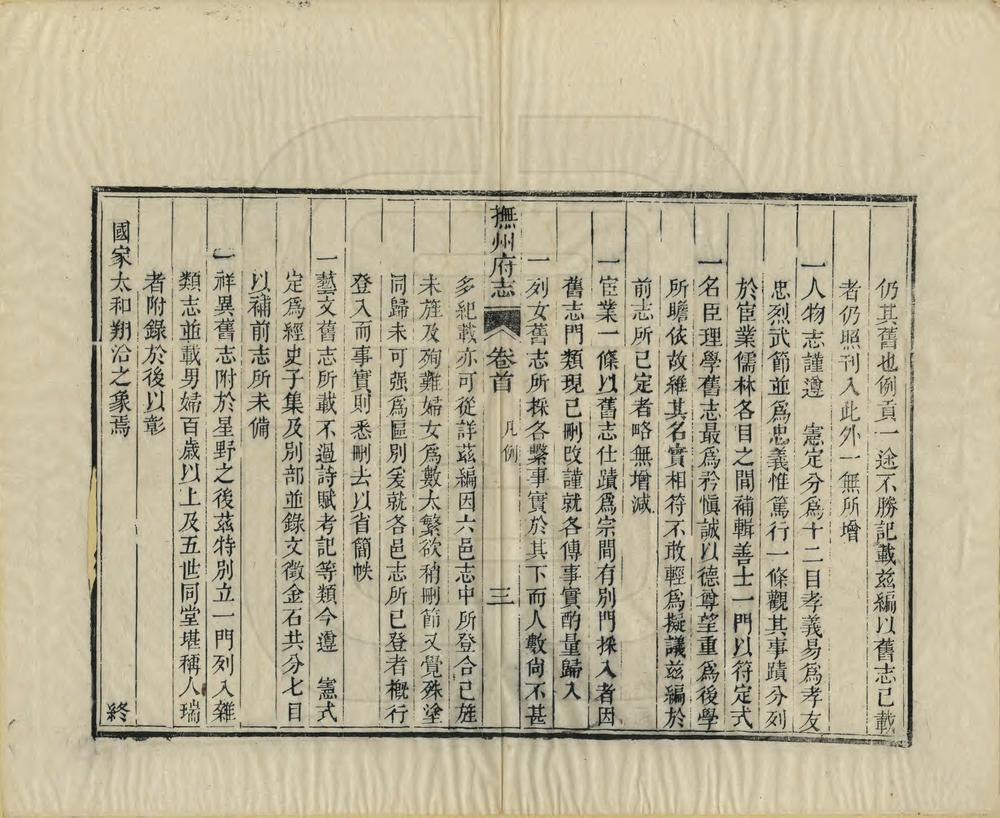 仍其舊也例貢一途不勝記載茲編以舊志已載
者仍照刊入此外一無所增
一人物志謹遵　憲定分爲十二目孝義易爲孝友
忠烈武節並爲忠義惟篤行一條觀其事蹟分列
於宦業儒林各目之間補輯善士一門以符定式
一名臣理學舊志最爲矜愼誠以德尊望重爲後學
所瞻依故維其名實相符不敢輕爲擬議茲編於
前志所已定者略無增減
一宦業一條以舊志仕蹟爲宗間有別門採入者因
舊志門類現已刪改謹就各傳事實酌量歸入
一列女舊志所採各繫事實於其下而人數尙不甚
撫州府志　卷首　凡例　三
多紀載亦可從詳茲編因六邑志中所登合已旌
未旌及殉難婦女爲數太繁欲稍刪節又覺殊塗
同歸未可强爲區別爰就各邑志所已登者槪行
登入而事實則悉刪去以省簡帙
一藝文舊志所載不過詩賦考記等類今遵　憲式
定爲經史子集及別部並錄文徵金石共分七目
以補前志所未備
一祥異舊志附於星野之後茲特別立一門列入雜
類志並載男婦百歲以上及五世同堂堪稱人瑞
者附錄於後以彰
國家太和翔洽之象焉　終